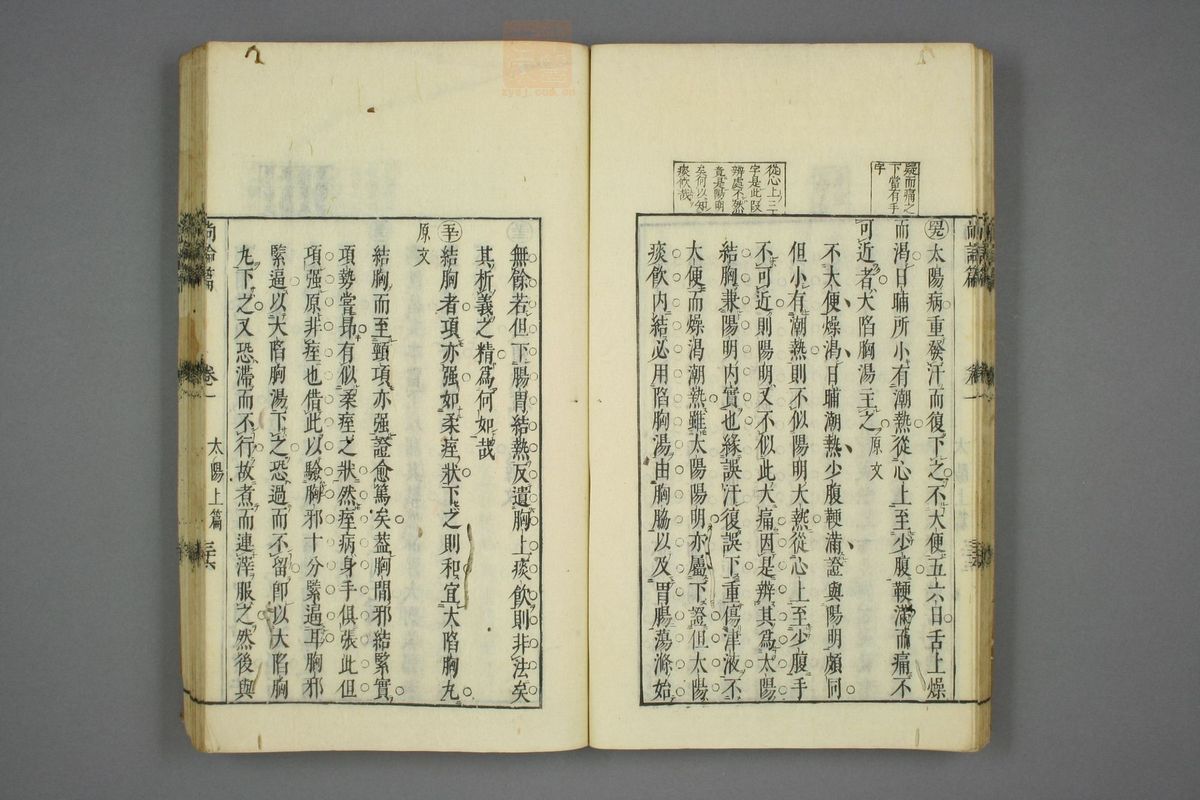 疑而痛之
下當有手
字
從心上三
字是此段
辨處不然
竟是陽明
矣何以知
痰飲哉
太陽病重發汗而復下之不大便五六日舌上燥
而渴日晡所小有潮熱從心上至少腹鞕滿而痛不
可近者大陷胸湯主之 原文
不大便燥渴日晡潮熱少腹鞕滿證與陽明頗同
但小有潮熱則不似陽明大熱從心上至少腹手
不可近則陽明又不似此大痛因是辨其為太陽
結胸兼陽明内實也緣誤汗復誤下重傷津液不
大便而燥渴潮熱雖太陽陽明亦屬下證但太陽
痰飲内結必用陷胸湯由胸脇以及胃腸蕩滌始
尚論篇 卷一
無餘若但下腸胃結熱反遺胸上痰飲則非法矣
其析義之精為何如哉
結胸者項亦强如柔痓狀下之則和宜大陷胸丸
原文
結胸而至頸項亦强證愈篤矣葢胸間邪結緊實
項勢嘗昂有似柔痓之狀然痓病身手俱張此但
項强原非痓也借此以驗胸邪十分緊逼耳胸邪
緊逼以大陷胸湯下之恐過而不留卽以大陷胸
丸下之又恐滯而不行故煮而連滓服之然後與
尚論篇 卷一 太陽上篇 三十六
zysj.com.cn